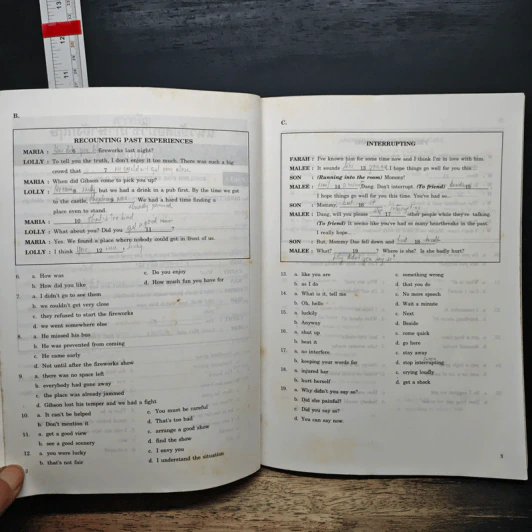 B.
RECOUNTING PAST EXPERIENCES
MARIA : fireworks last night?
LOLLY : To tell you the truth, I don't enjoy it too much. There was such a big
crowd that 7
MARIA : When did Gibson come to pick you up?
LOLLY : 8 but we had a drink in a pub first. By the time we got
to the castle, 9 . We had a hard time finding a
place even to stand.
MARIA : 10
LOLLY : What about you? Did you 11
MARIA : Yes. We found a place where nobody could get in front of us.
LOLLY : I think 12
6. a. How was
b. How did you like
c. Do you enjoy
d. How much fun you have for
7. a. I didn't go to see them
b. we couldn't get very close
c. they refused to start the fireworks
d. we went somewhere else
8. a. He missed his bus
b. He was prevented from coming
c. He came early
d. Not until after the fireworks show
9. a. there was no space left
b. everybody had gone away
c. the place was already jammed
d. Gibson lost his temper and we had a fight
10. a. It can't be helped
b. Don't mention it
c. You must be careful
d. That's too bad
11. a. get a good view
b. see a good scenery
c. arrange a good show
d. find the show
12. a. you were lucky
b. that's not fair
c. I envy you
d. I understand the situation
C.
INTERRUPTING
FARAH : I've known him for some time now and I think I'm in love with him.
MALEE : It sounds 13 I hope things go well for you this
SON : (Running into the room) Mommy!
MALEE : 14 Dang. Don't interrupt. (To friend) 15
I hope things go well for you this time. You've had so..
SON : Mommy,
MALEE : Dang, will you please 17 other people while they're talking.
(To friend) It seems like you've had so many heartbreaks in the past.
I really hope...
SON : But, Mommy Dao fell down and 18
MALEE : What? 19 Where is she? Is she badly hurt?
13. a. like you are
b. so I do
c. something wrong
d. that you do
14. a. What is it, tell me
b. Oh, hello
c. No more speech
d. Wait a minute
15. a. luckily
b. Anyway
c. Next
d. Beside
16. a. shut up
b. beat it
c. come quick
d. go here
17. a. no interfere
b. keeping your words for
c. stay away
d. stop interrupting
18. a. injured her
b. hurt herself
c. crying loudly
d. get a shock
19. a. Why didn't you say so?
b. Did she painful?
c. Did you say so?
d. You can say now.
5